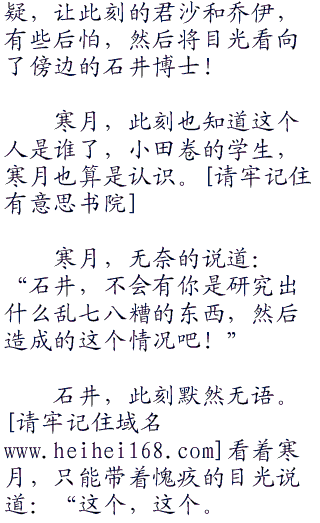 疑，让此刻的君沙和乔伊，
有些后怕，然后将目光看向
了傍边的石井博士！
寒月，此刻也知道这个
人是谁了，小田卷的学生，
寒月也算是认识。[请牢记住
有意思书院]
寒月，无奈的说道：
“石井，不会有你是研究出
什么乱七八糟的东西，然后
造成的这个情况吧！”
石井，此刻默然无语。
[请牢记住域名
www.heihei168.com]看着寒
月，只能带着愧疚的目光说
道：“这个，这个。